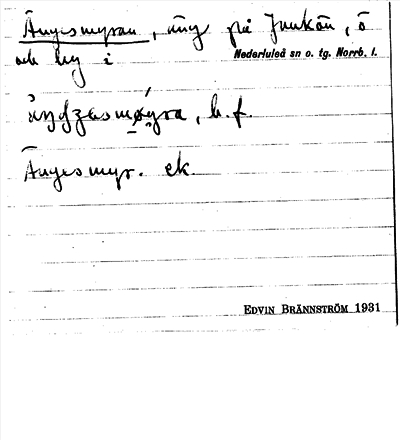 Ängesmyran, äng på Junkön, ö
och by i Nederluleå sn o. tg. Norrb. l.
b. f.
Ängesmyr. ek.
EDVIN BRÄNNSTRÖM 1931